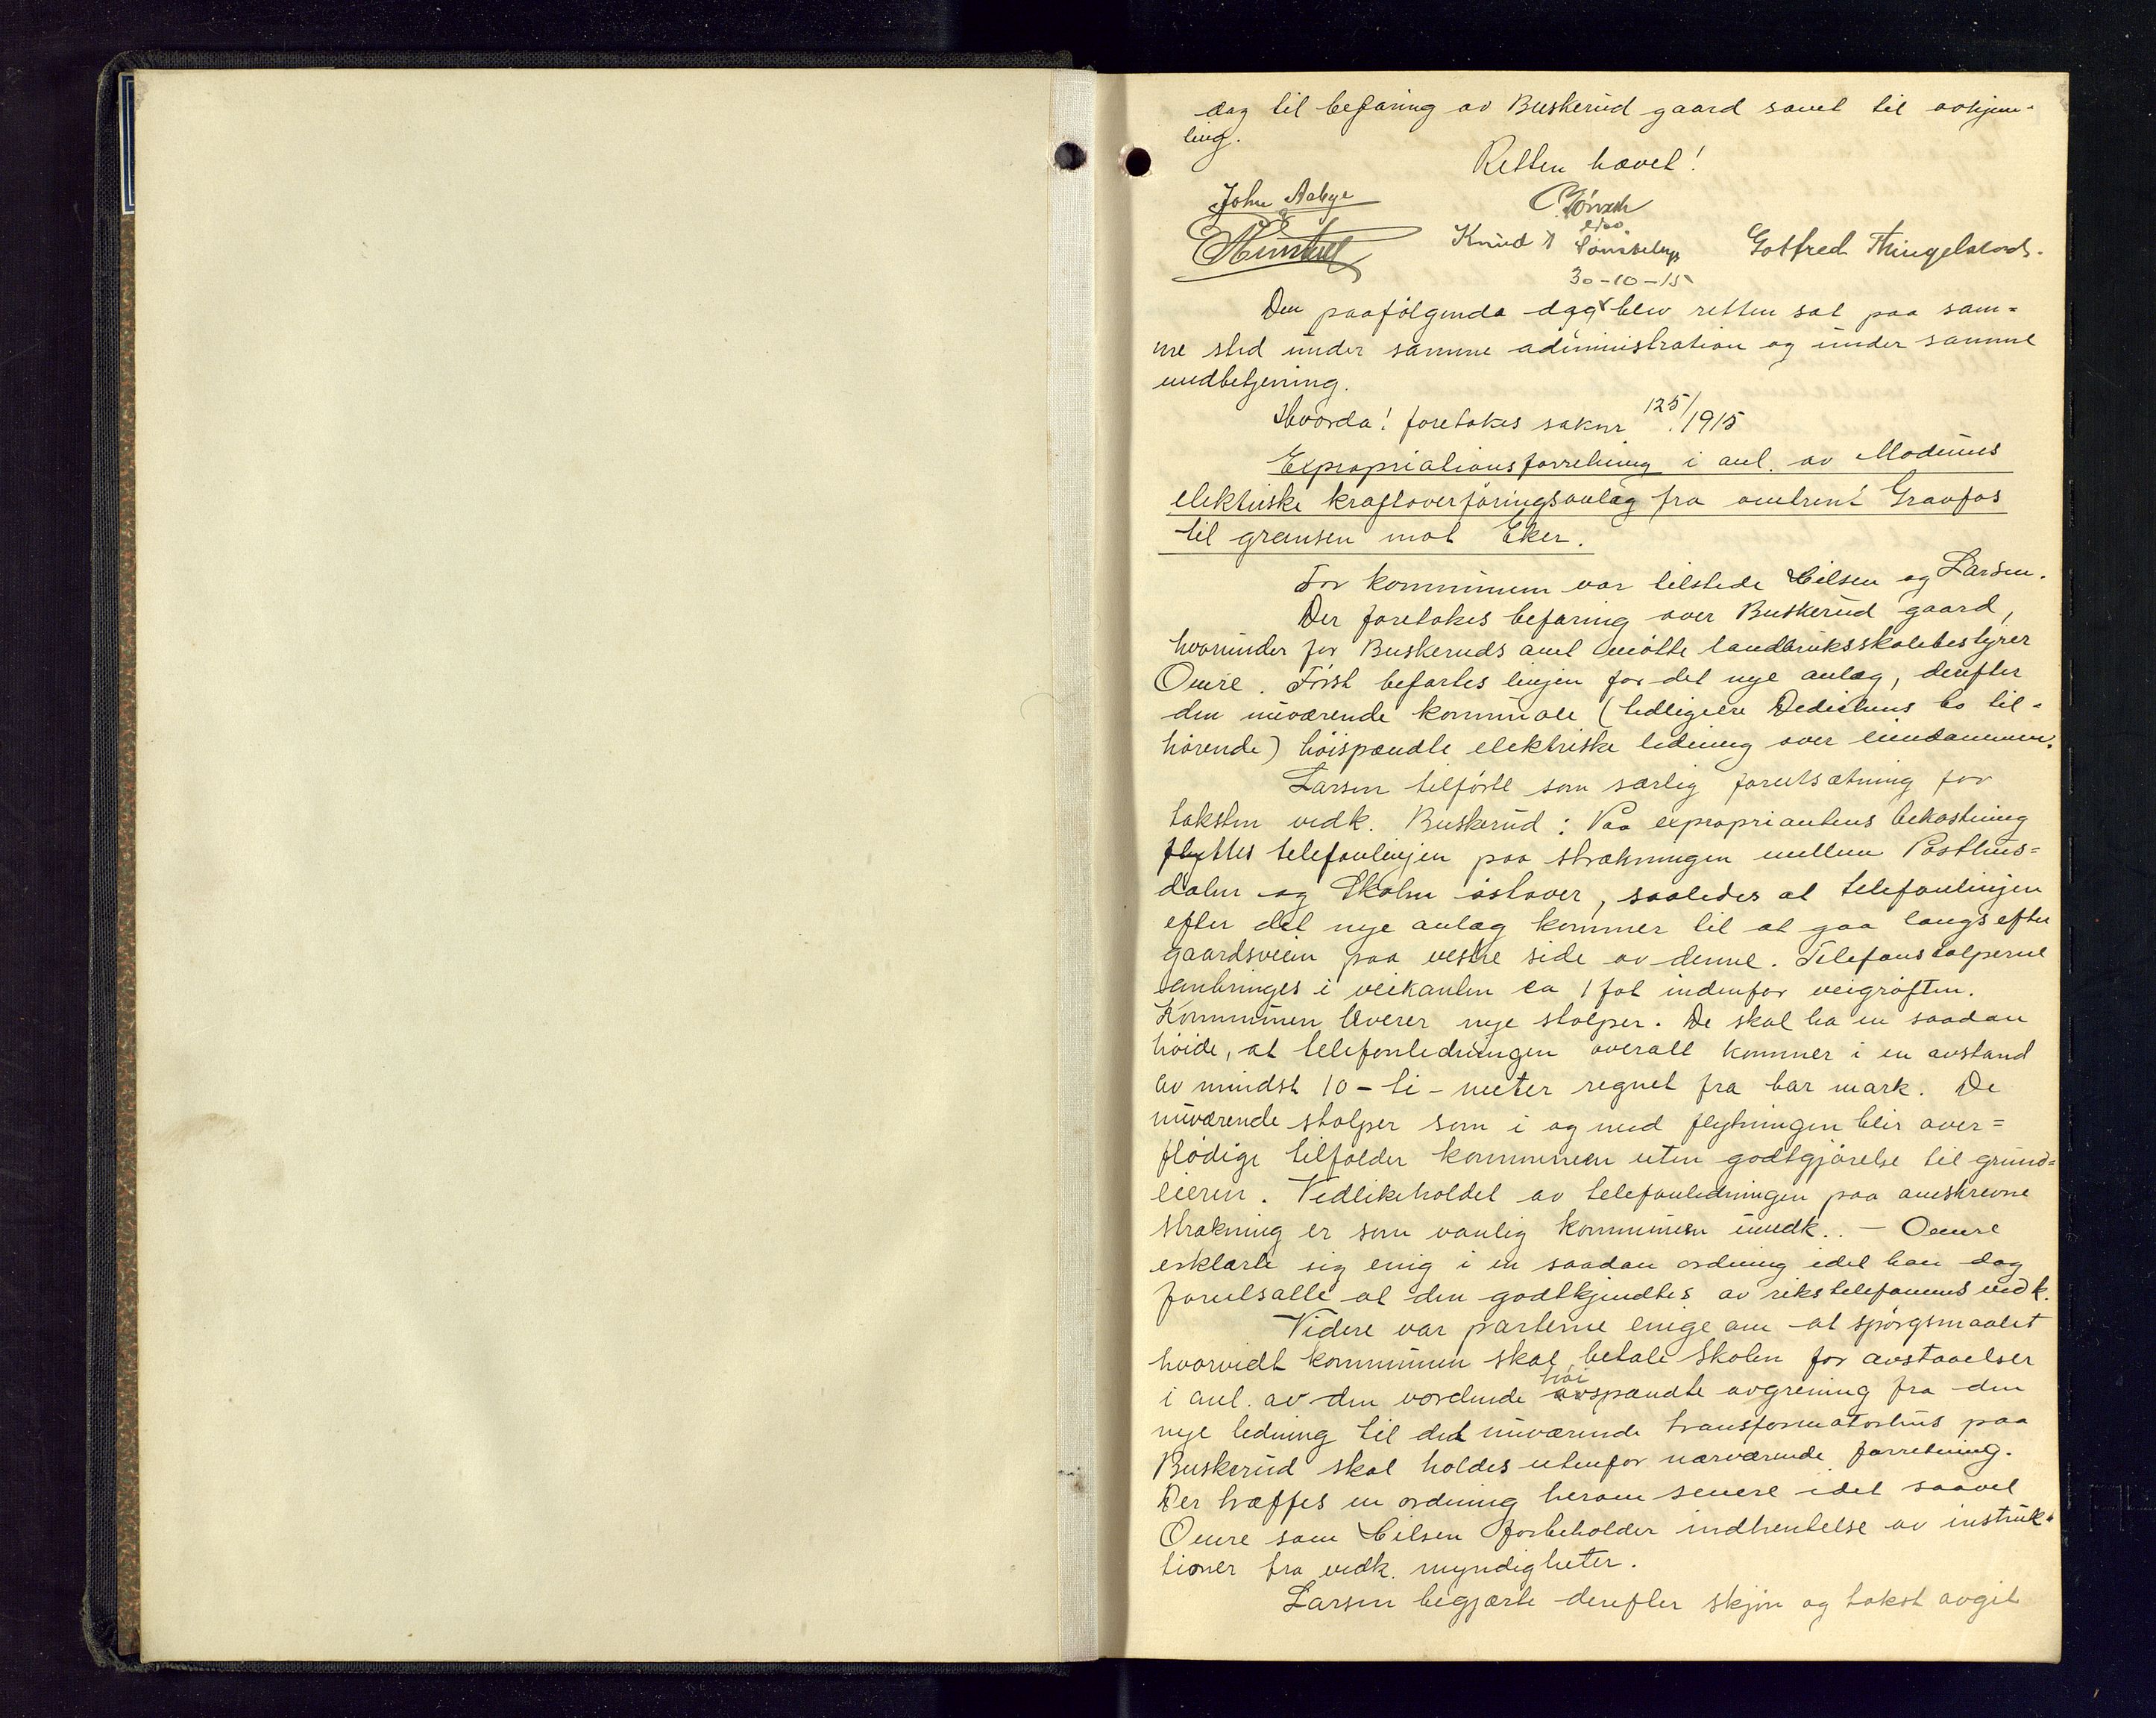 dag til befaring av Buskerud gaard samt til avhjem-
ling.
Retten hævet!
John Aabye
Knud
Gotfred Thingelstad.
30-10-15
Den paafølgende dag x blev retten sat paa sam=
me sted under samme administration og under samme
medbetjening.
Hvorda! foretokes saknr. 125/1915
Expropriationsforretning i anl. av Modums
elektriske kraftoverføringsanlæg fra omtrent Gravfos
til grænsen mot Eker.
For kommunen var tilstede Eilsen og Larsen.
Der foretokes befaring over Buskerud gaard,
hvorunder for Buskeruds amt møtte landbruksskolebestyrer
Omre. Først befartes linjen for det nye anlæg, derefter
den nuværende kommunale (tidligere Dedichens bo til-
hørende) høispændte elektriske ledning over eiendommen.
Larsen tilførte som særlig forutsætning for
taksten vedk. Buskerud: Paa expropriantens bekostning
flyttes telefonlinjen paa strækningen mellem Posthus=
dalen og Skolen østover, saaledes at telefonlinjen
efter det nye anlæg kommer til at gaa langs efter
gaardsveien paa vestre side av denne. Telefonstolperne
anbringes i veikanten ca 1 fot indenfor veigrøften.
Kommunen leverer nye stolper. De skal ha en saadan
høide, at telefonledningen overalt kommer i en avstand
av mindst 10 - ti - meter regnet fra bar mark. De
nuværende stolper som i og med flytningen blir over=
flødige tilfalder kommunen uten godtgjørelse til grund=
eieren. Vedlikeholdet av telefonledningen paa omskrevne
strækning er som vanlig kommunen uvedk.. - Omre
erklærte sig enig i en saadan ordning idet han dog
forutsatte at den godtkjendtes av rikstelefonens vedk.
Videre var parterne enige om at spørgsmaalet
hvorvidt kommunen skal betale Skolen for avstaaelser
i anl. av den vordende høispændte avgrening fra den
nye ledning til det nuværende transformatorhus paa
Buskerud skal holdes utenfor nærværende forretning.
Der træffes en ordning herom senere idet saavel
Omre som Eilsen forbeholder indhentelse av instruk-
tioner fra vedk. myndigheter.
Larsen begjærte derefter skjøn og takst avgit